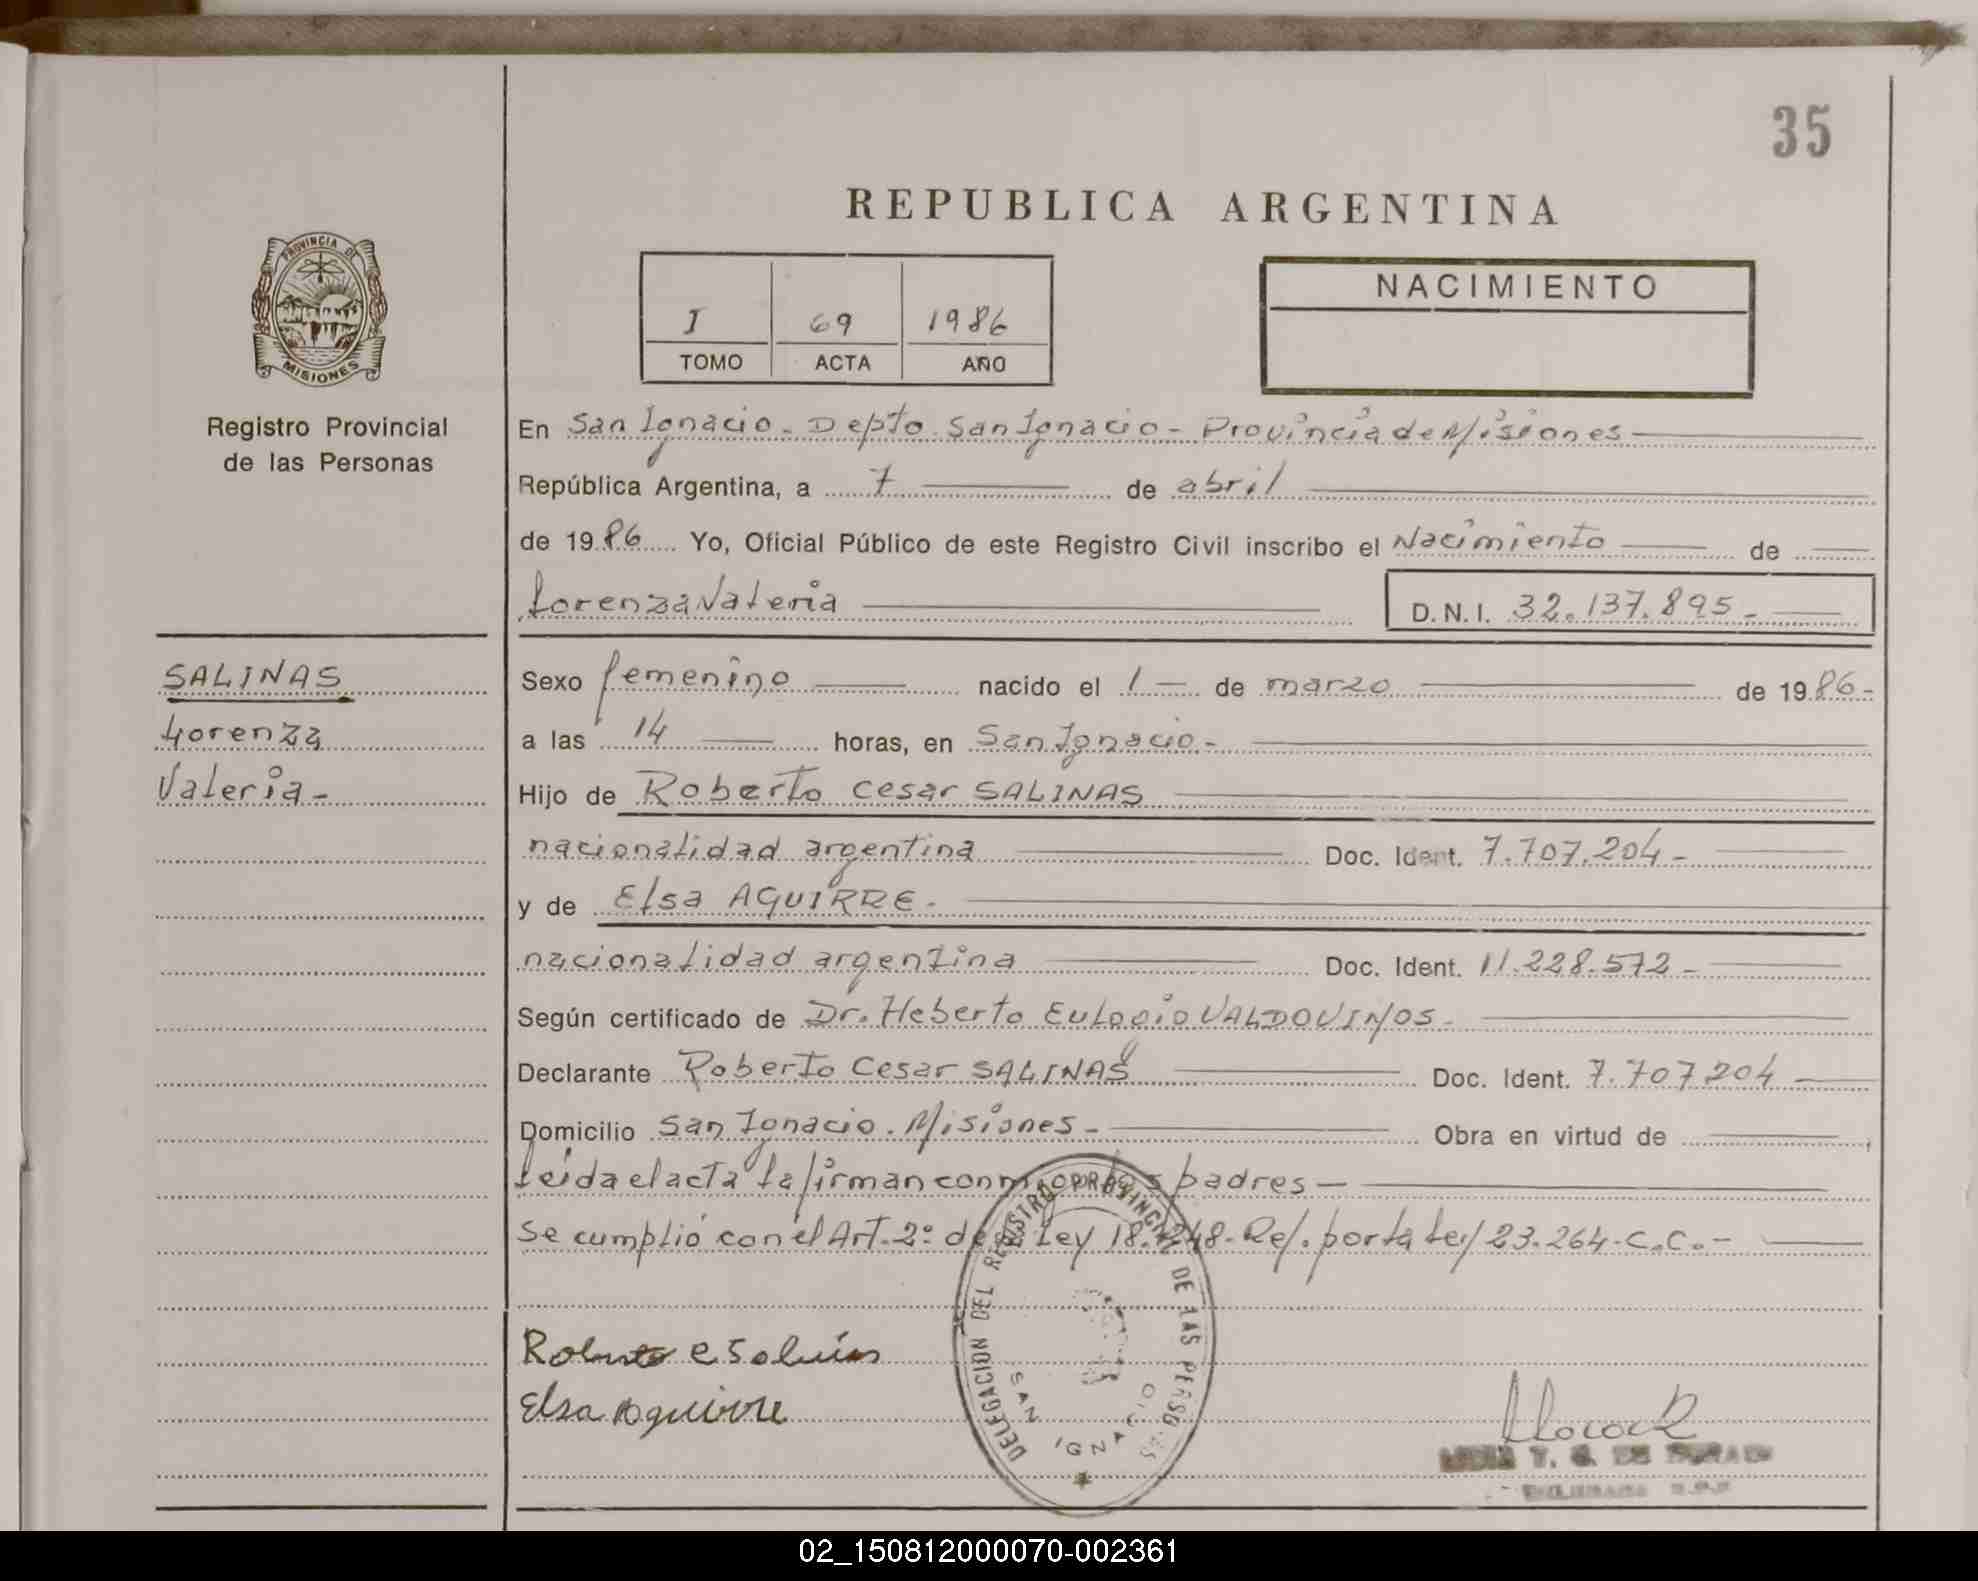 35
REPUBLICA ARGENTINA
PROVINCIA DE
MISIONES
Registro Provincial
de las Personas
I 69 1986
TOMO ACTA AÑO
NACIMIENTO
En San Ignacio - Depto San Ignacio - Provincia de Misiones
República Argentina, a 7 de abril
de 1986 Yo, Oficial Público de este Registro Civil inscribo el Nacimiento de
Lorenza Valeria
D.N.I. 32.137.895-
SALINAS
Lorenza
Valeria-
Sexo femenino nacido el 1 de marzo de 1986-
a las 14 horas, en San Ignacio-
Hijo de Roberto Cesar SALINAS
nacionalidad argentina Doc. Ident. 7.707.204-
y de Elsa AGUIRRE-
nacionalidad argentina Doc. Ident. 11.228.572-
Según certificado de Dr. Heberto Eulogio VALDOVINOS-
Declarante Roberto Cesar SALINAS Doc. Ident. 7.707204
Domicilio San Ignacio. Misiones- Obra en virtud de
Leida el acta la firman conmigo los padres-
Se cumplió con el Art. 2º de la Ley 18.248- Ref. por la Ley 23.264-C.C.-
DELEGACION DEL REGISTRO PROVINCIAL DE LAS PERSONAS
SAN IGNACIO
Roberto C Salinas
Elsa Aguirre
02_150812000070-002361